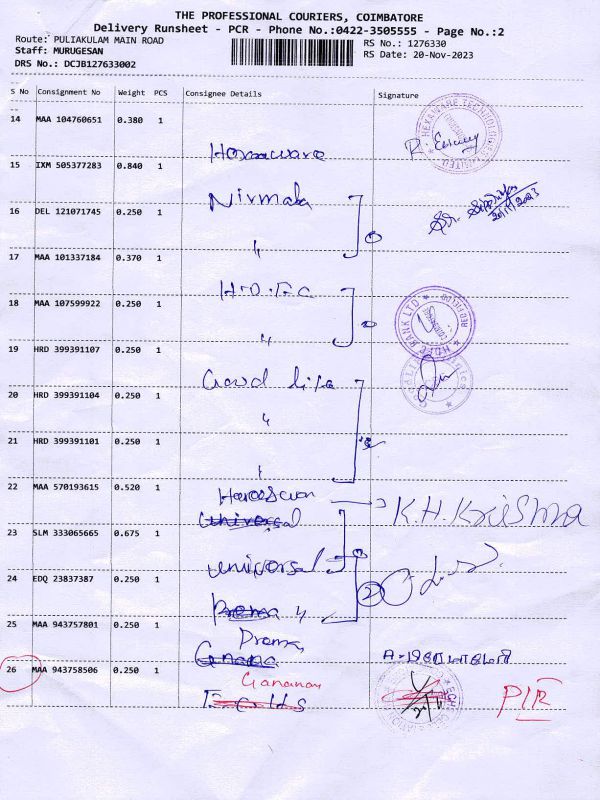 THE PROFESSIONAL COURIERS, COIMBATORE
Delivery Runsheet - PCR - Phone No.:0422-3505555 - Page No.:2
Route: PULIAKULAM MAIN ROAD
Staff: MURUGESAN
DRS No.: DCJB127633002
RS No.: 1276330
RS Date: 20-Nov-2023
S No Consignment No Weight PCS Consignee Details Signature
14 MAA 104760651 0.380 1
Hexaware
15 IXM 505377283 0.840 1
Nirmala
20/11/2023
16 DEL 121071745 0.250 1
〃
17 MAA 101337184 0.370 1
H.D.F.C
18 MAA 107599922 0.250 1
〃
HDFC BANK LTD
19 HRD 399391107 0.250 1
20 HRD 399391104 0.250 1
〃
21 HRD 399391101 0.250 1
〃
22 MAA 570193615 0.520 1
K.H.Krishna
Universal
23 SLM 333065665 0.675 1
Universal
24 EDQ 23837387 0.250 1
Prema 〃
25 MAA 943757801 0.250 1
Prema
26 MAA 943758506 0.250 1
PIR